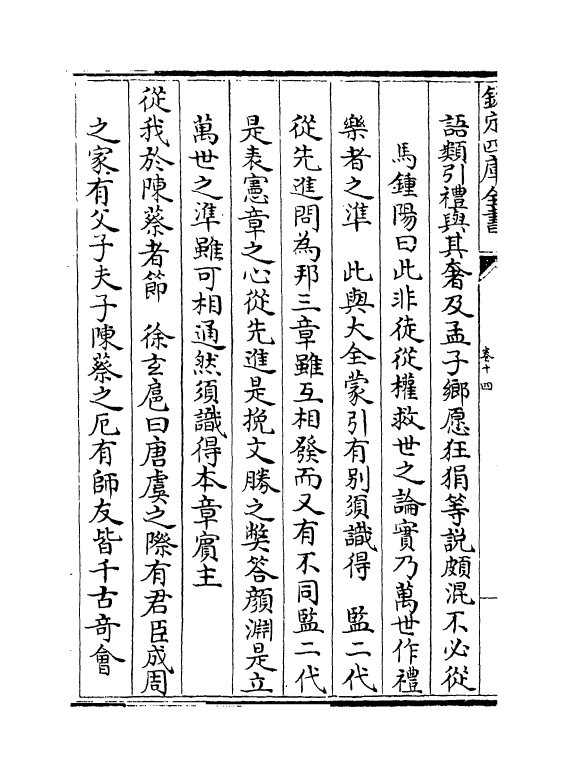 欽定四庫全書
卷十四
語類引禮與其奢及孟子鄉愿狂狷等說頗混不必從
馬鍾陽曰此非徒從權救世之論實乃萬世作禮
樂者之準　此與大全蒙引有别須識得　監二代
從先進問為邦三章雖互相發而又有不同監二代
是表憲章之心從先進是挽文勝之獘答顔淵是立
萬世之準雖可相通然須識得本章賓主
從我於陳蔡者節　徐玄扈曰唐虞之際有君臣成周
之家有父子夫子陳蔡之厄有師友皆千古竒會